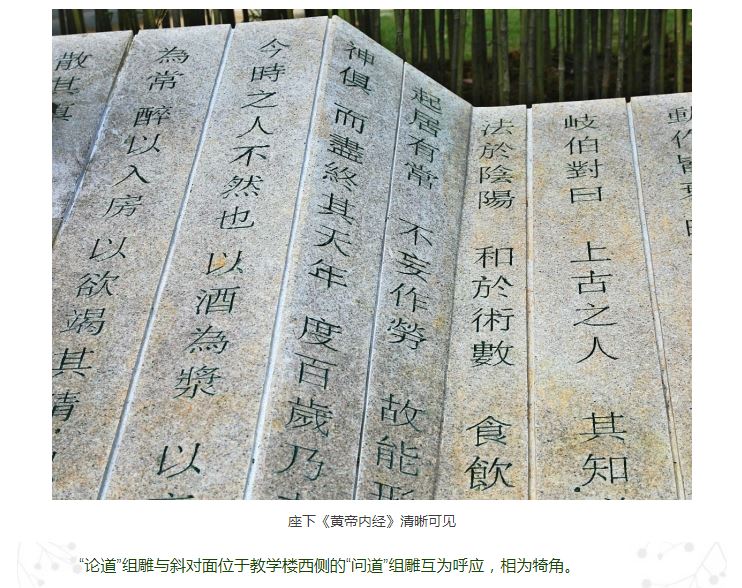 動作皆衰
岐伯對曰 上古之人 其知
法於陰陽 和於術數 食飲
起居有常 不妄作勞 故能形
神俱 而盡終其天年 度百歲乃
今時之人不然也 以酒為漿 以
為常 醉以入房 以欲竭其精
散其真
座下《黄帝内经》清晰可见
“论道”组雕与斜对面位于教学楼西侧的“问道”组雕互为呼应，相为犄角。